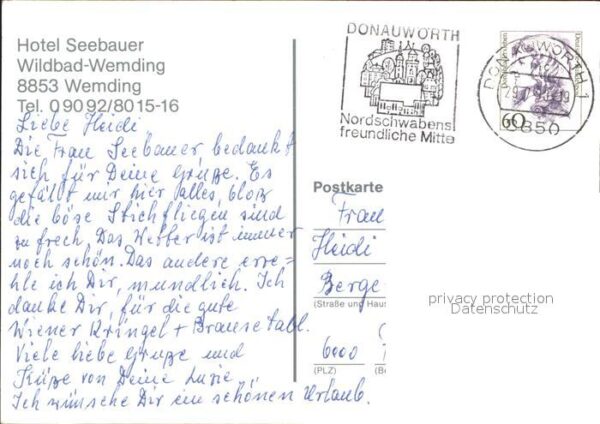 Hotel Seebauer
Wildbad-Wemding
8853 Wemding
Tel. 0 90 92/80 15-16
Liebe Heidi
Die Frau Seebauer, bedankt
sich für Deine Grüße. Es
gefällt mir hier alles, bloß
die böse Stichfliegen sind
zu frech. Das Wetter ist immer
noch schön. Das andere erze-
hle ich Dir, mundlich. Ich
danke Dir, für die gute
Wiener Kringel + Brause tabl.
Viele liebe Grüße und
Küße von Deine Luzie.
Ich wünsche Dir ein schönen Urlaub.
DONAUWÖRTH
Nordschwabens
freundliche Mitte
DONAUWÖRTH 1
8850
60
Postkarte
Frau
Heidi
Berge
(Straße und Haus
6000
(PLZ)
privacy protection
Datenschutz